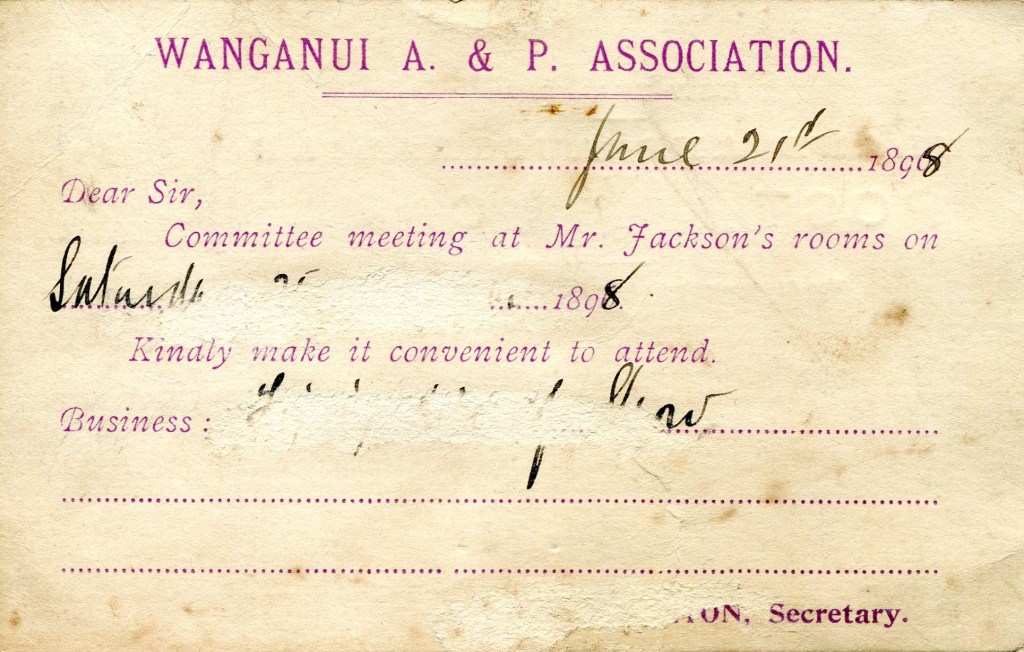 WANGANUI A. & P. ASSOCIATION.
June 21st 1898
Dear Sir,
Committee meeting at Mr. Jackson's rooms on
1898.
Kindly make it convenient to attend.
Business:
Secretary.